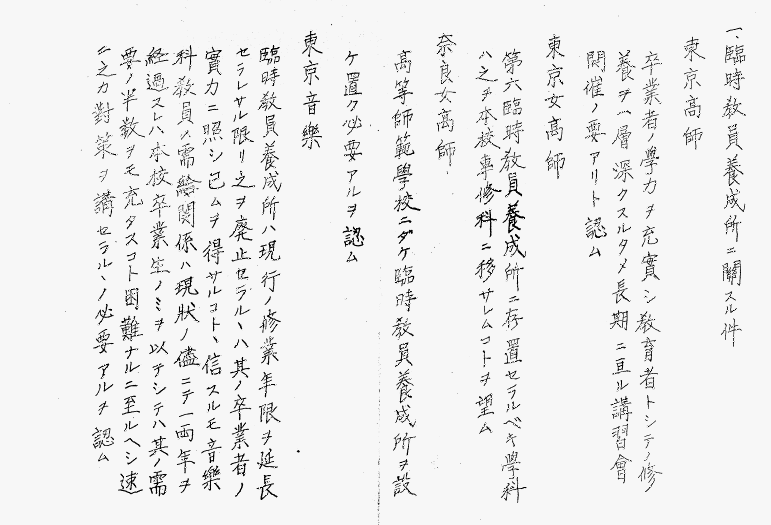 一、臨時教員養成所ニ關スル件
東京高師
卒業者ノ學力ヲ充實シ教育者トシテノ修
養ヲ一層深クスルタメ長期ニ亘ル講習會
開催ノ要アリト認ム
東京女高師
第六臨時教員養成所ニ存置セラルベキ學科
ハ之ヲ本校專修科ニ移サレムコトヲ望ム
奈良女高師
高等師範學校ニダケ臨時教員養成所ヲ設
ケ置ク必要アルヲ認ム
東京音樂
臨時教員養成所ハ現行ノ修業年限ヲ延長
セラレサル限リ之ヲ廃止セラルヽハ其ノ卒業者ノ
實力ニ照シ已ムヲ得サルコトヽ信スルモ音樂
科教員ノ需給関係ハ現狀ノ儘ニテ一両年ヲ
経過スレハ本校卒業生ノミヲ以テシテハ其ノ需
要ノ半数ヲモ充タスコト困難ナルニ至ルヘシ速
ニ之カ對策ヲ講セラルヽノ必要アルヲ認ム